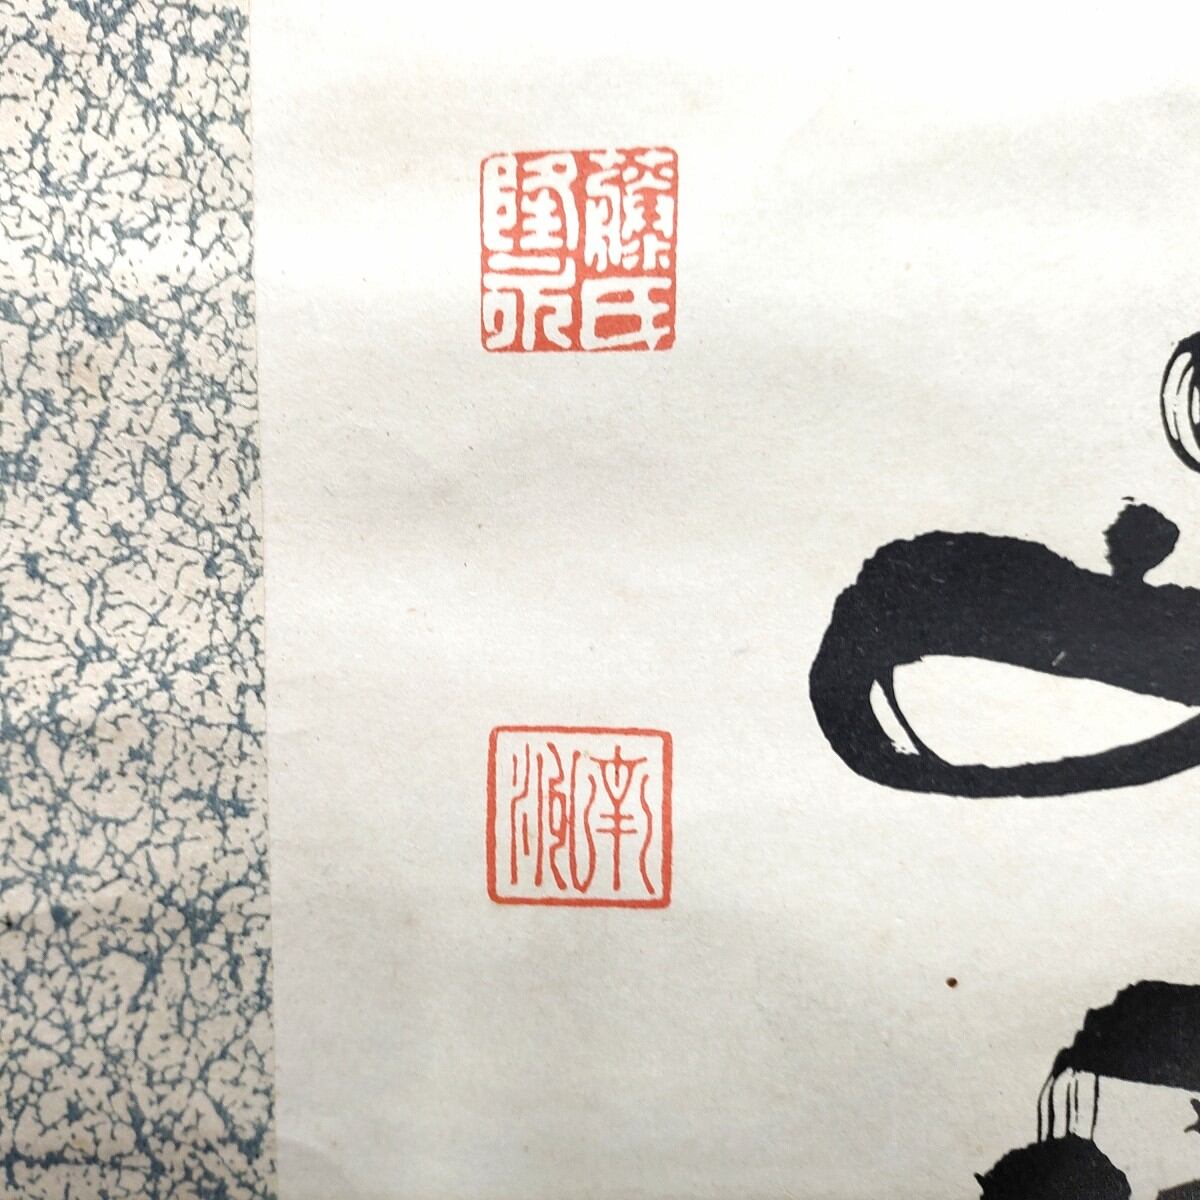 藤氏
隆永
南洲